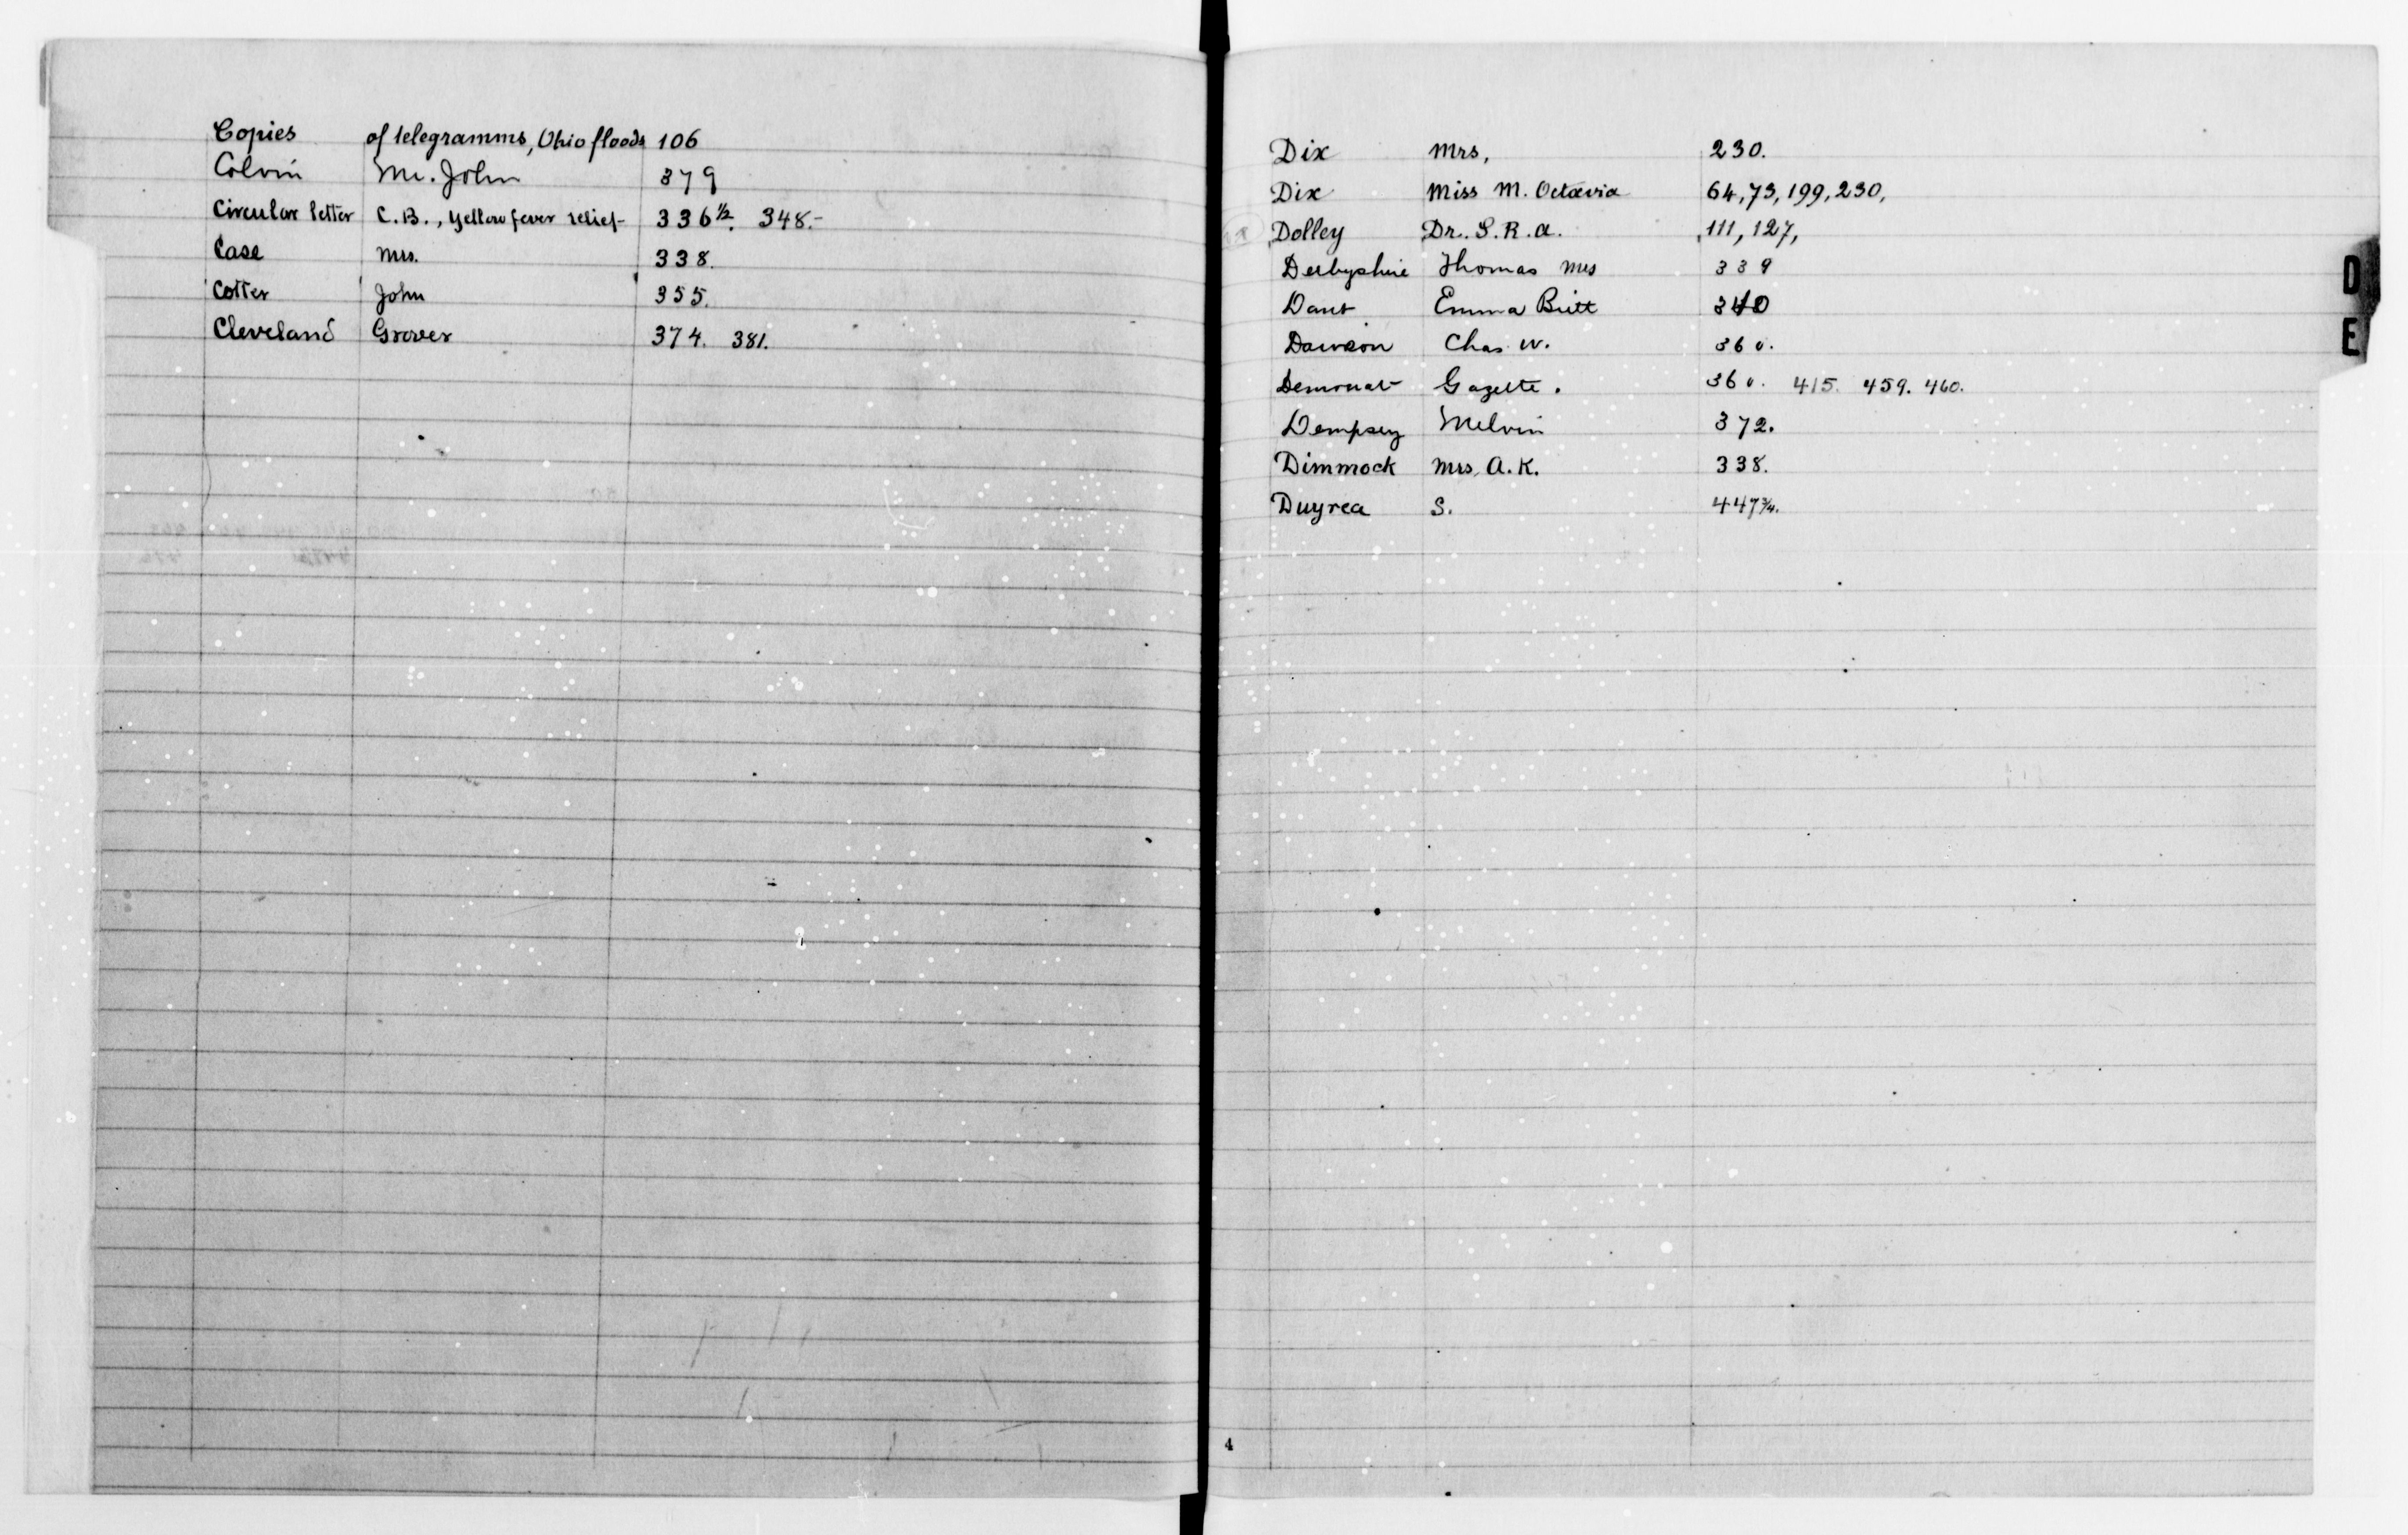 Copies of telegramms, Ohio floods 106
Colvin Mr. John 379
Circular letter C.B., yellow fever relief 336½. 348.-
Case Mrs. 338.
Cotter John 355.
Cleveland Grover 374. 381.
Dix Mrs, 230.
Dix Miss M. Octavia 64, 73, 199, 230,
Dolley Dr. S. R. A. 111, 127,
Derbyshire Thomas Mrs 339
Emma Britt 340
Dawson Chas W. 360.
Democrat Gazette. 360. 415. 459. 460.
Dempsey Melvin 372.
Dimmock Mrs, A. K. 338.
Duyrea S. 447¾.
D
E
4